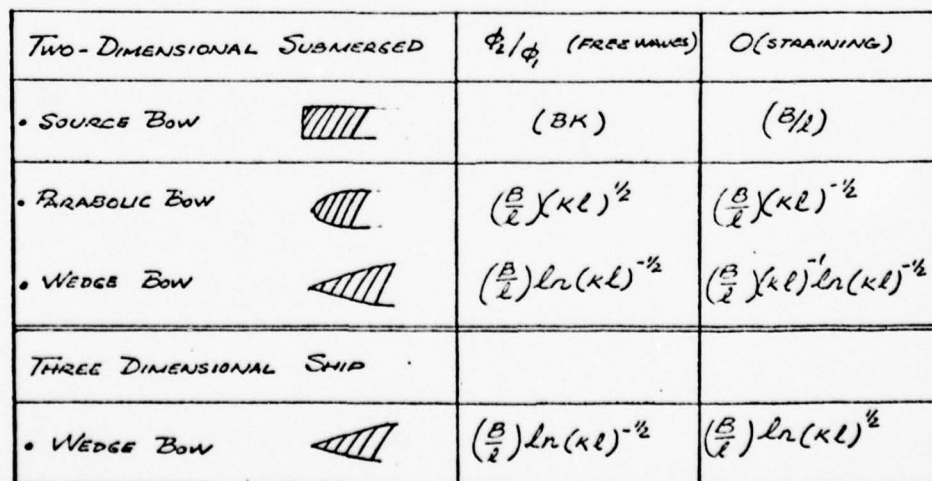 TWO-DIMENSIONAL SUBMERGED ϕ₂/ϕ₁ (FREE WAVES) O(STRAINING)
• SOURCE BOW (BK) (B/l)
• PARABOLIC BOW (B/l)(κl)^1/2 (B/l)(κl)^-1/2
• WEDGE BOW (B/l)ln(κl)^-1/2 (B/l)(κl)^-1 ln(κl)^-1/2
THREE DIMENSIONAL SHIP
• WEDGE BOW (B/l)ln(κl)^-1/2 (B/l)ln(κl)^1/2